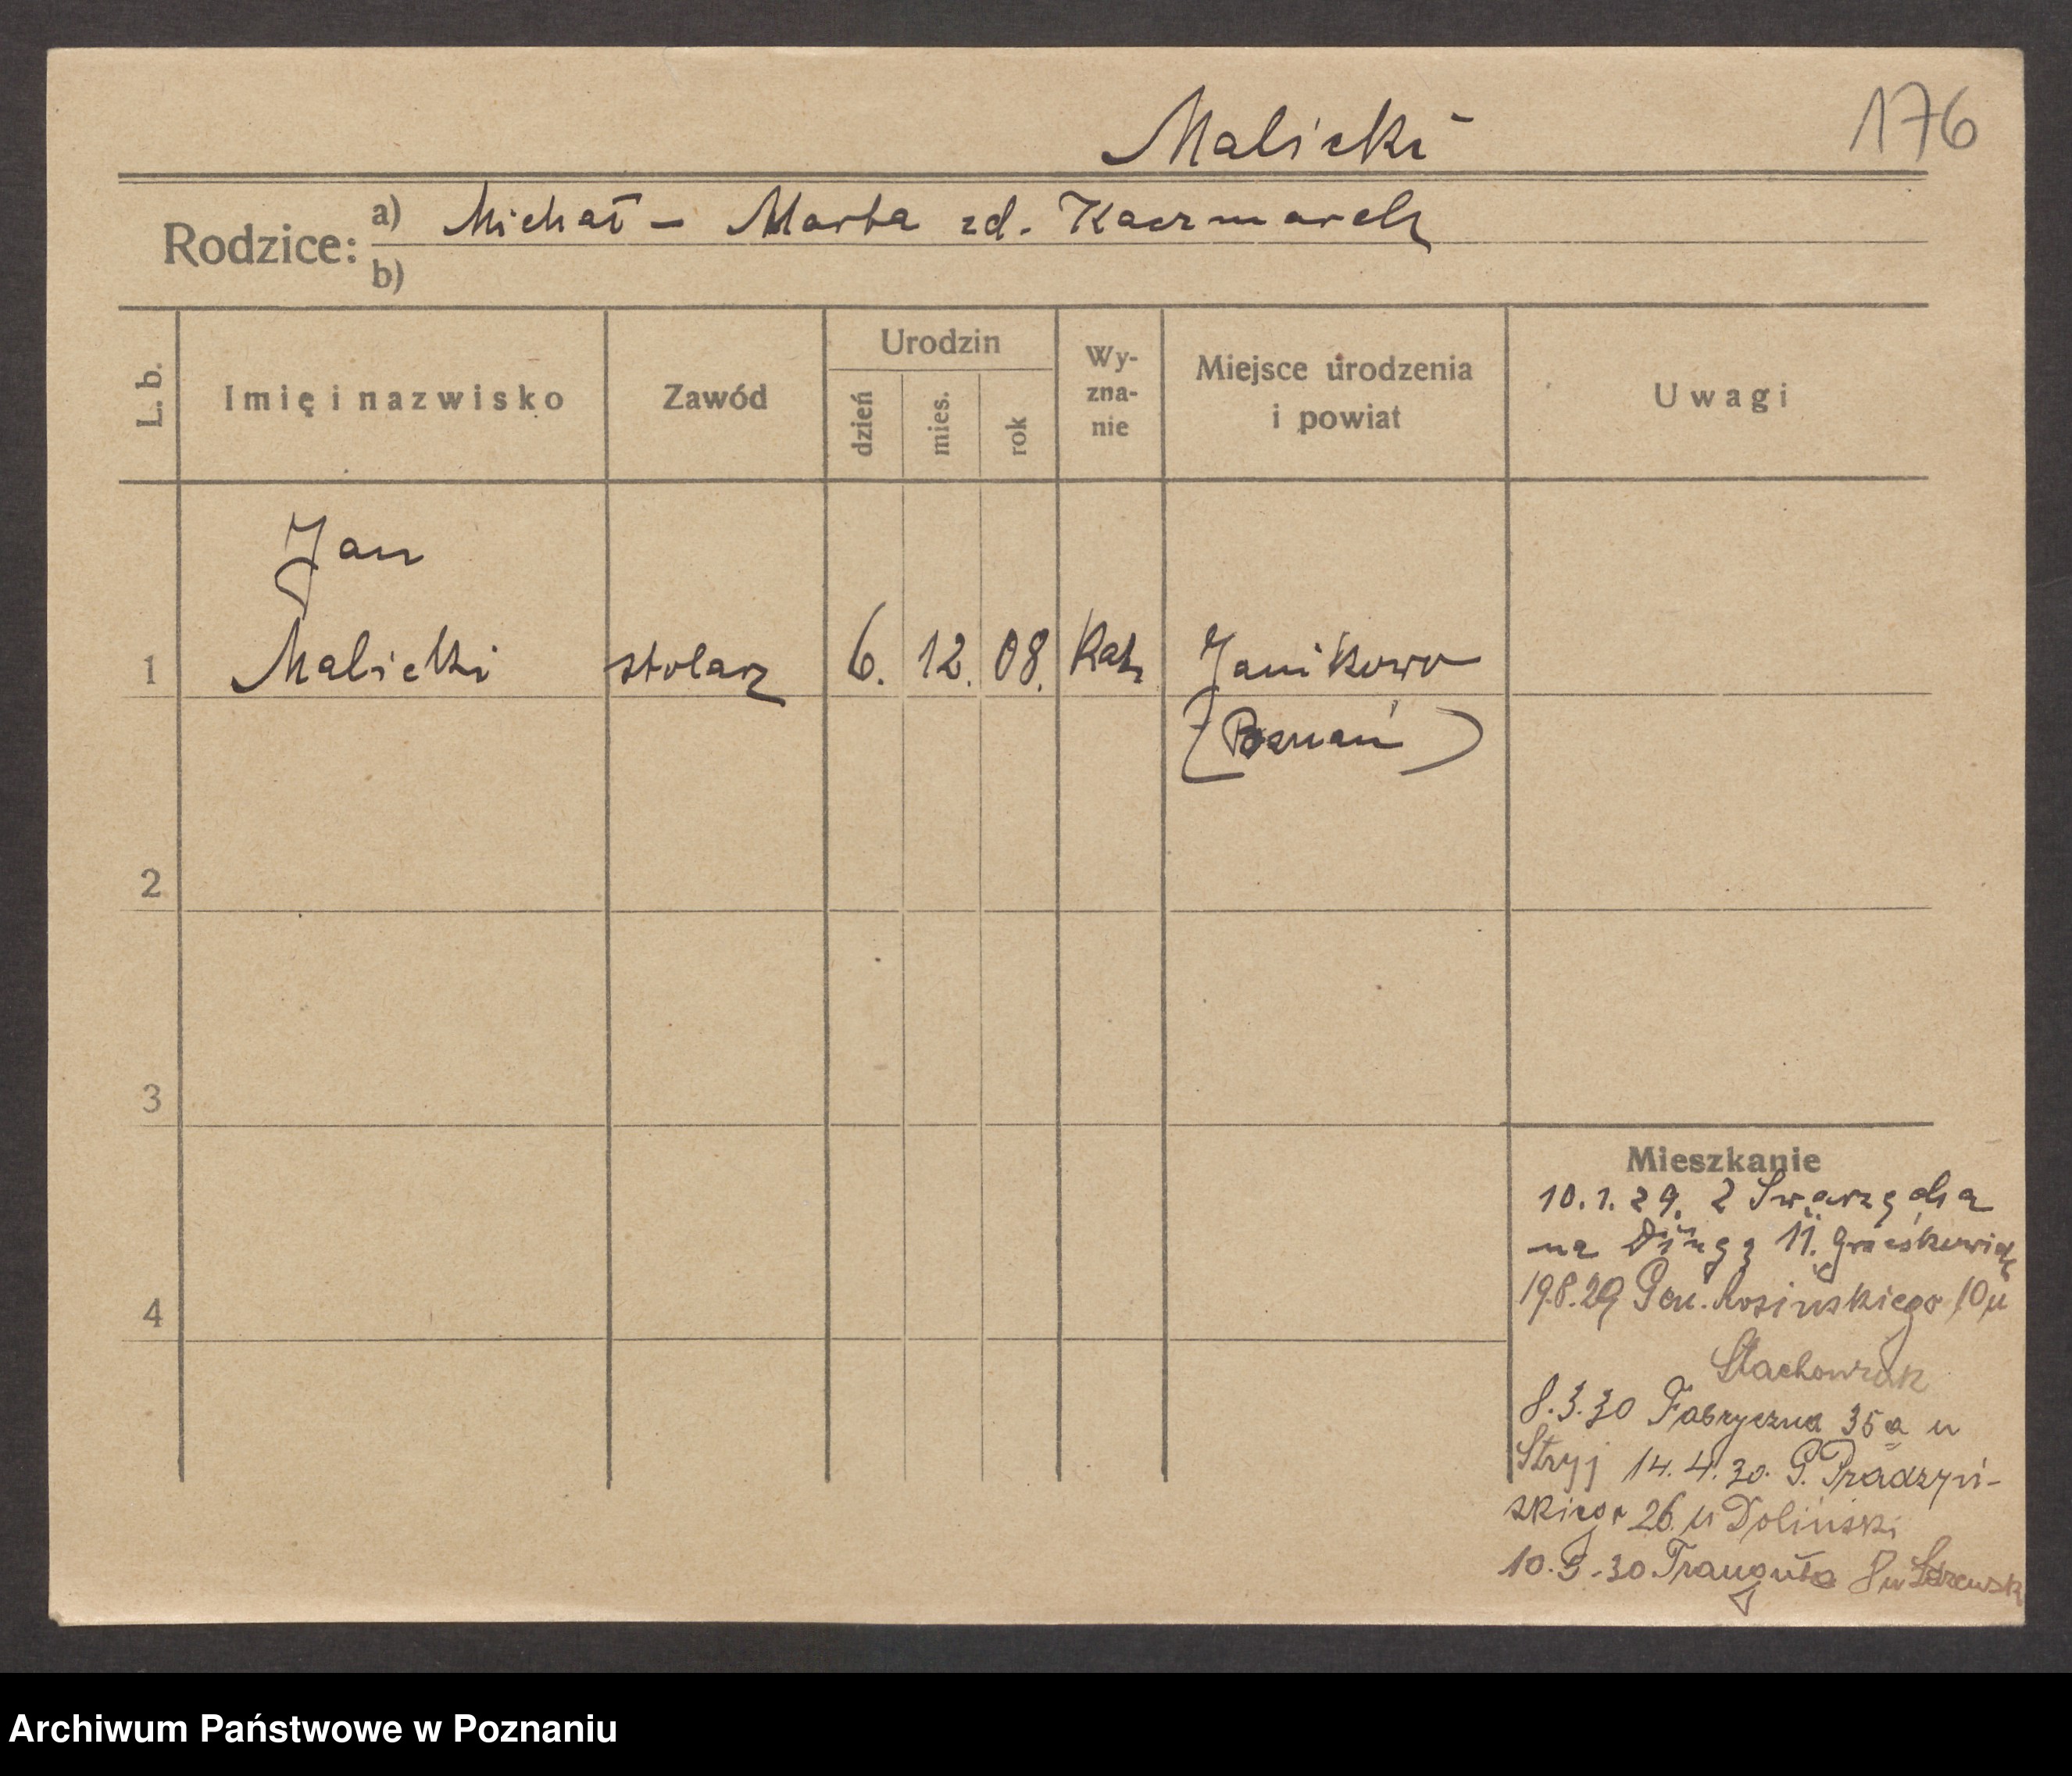 Malicki
176
Rodzice: a) Michał – Marta zd. Kaczmarek
b)
L. b.
Imię i nazwisko
Zawód
Urodzin
dzień
mies.
rok
Wy-
zna-
nie
Miejsce urodzenia
i powiat
Uwagi
Jan
1 Malicki stolarz 6. 12. 08. Kat. Janikowo
(Poznań)
2
3
4
Mieszkanie
10.1.29. z Swarzędza
na Długą 11.
19.8.29 Gen. Kosińskiego 10 u
Stachowiak
8.3.30 Fabryczna 35a u
Stryj 14.4.30. G. Prądzyń-
skiego 26 u Doliński
10.5.30 Traugutta 8 u
Archiwum Państwowe w Poznaniu